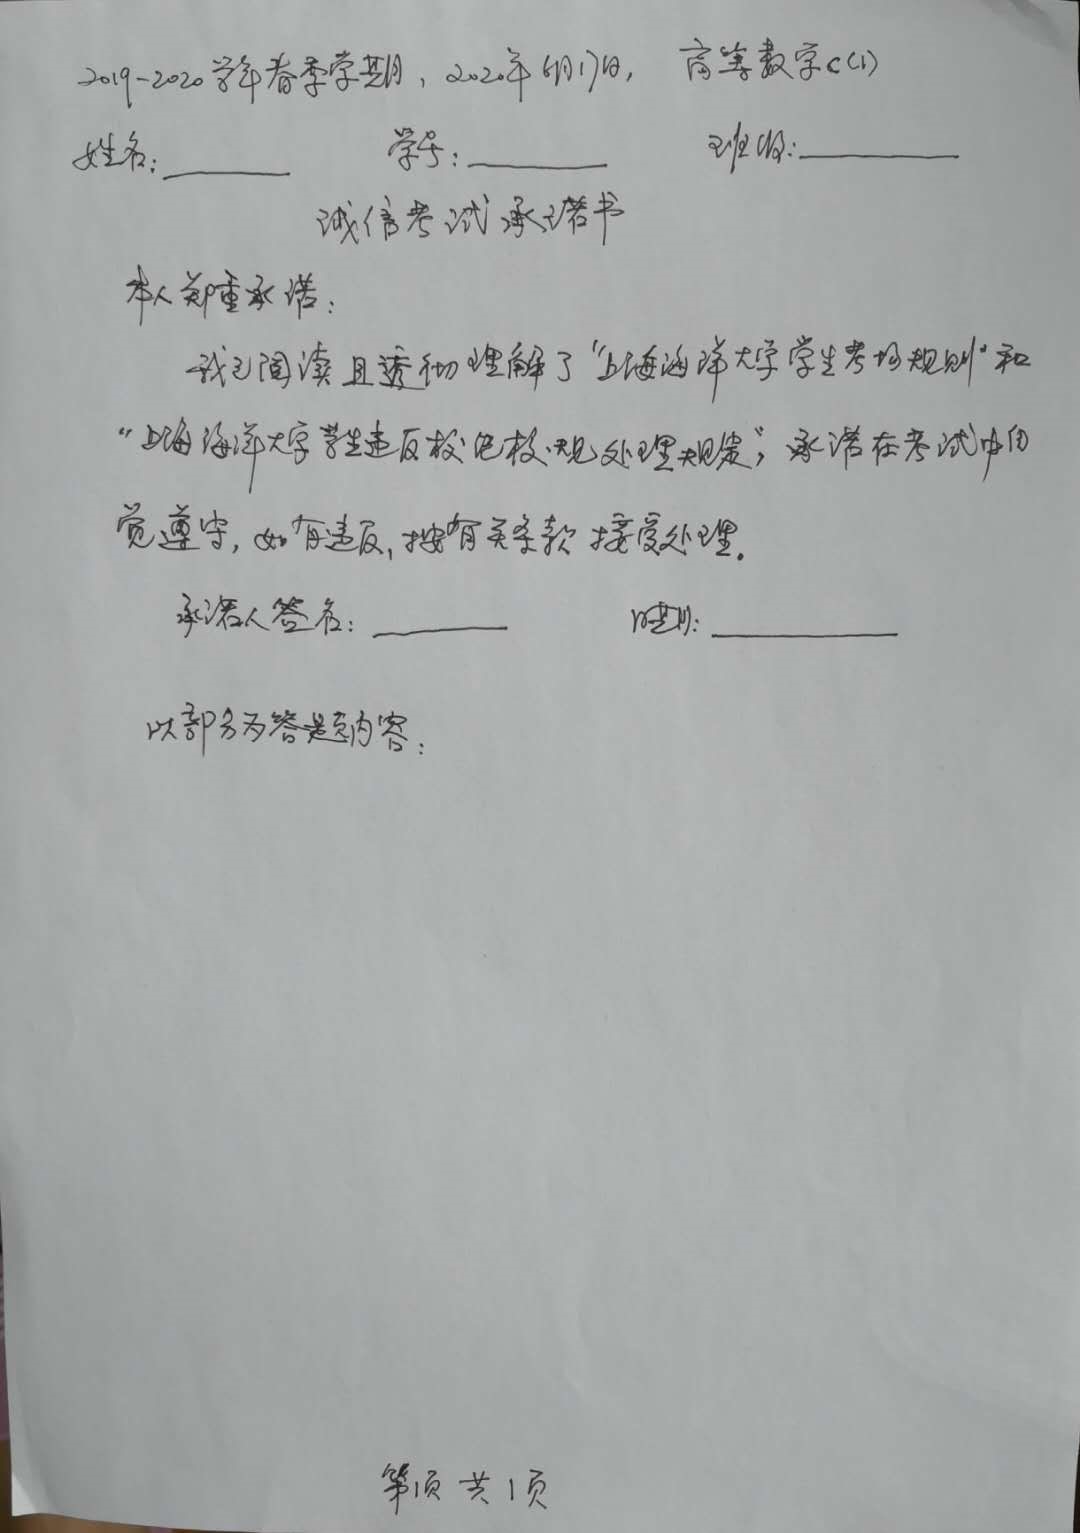 2019-2020学年春季学期，2020年6月17日， 高等数学C(1)
姓名：______ 学号：______ 班级：______
诚信考试承诺书
本人郑重承诺：
我已阅读且透彻理解了“上海海洋大学学生考场规则”和
“上海海洋大学学生违反校纪校规处理规定”，承诺在考试中自
觉遵守，如有违反，按有关条款接受处理。
承诺人签名：______ 日期：______
以部分为答题内容：
第1页 共1页